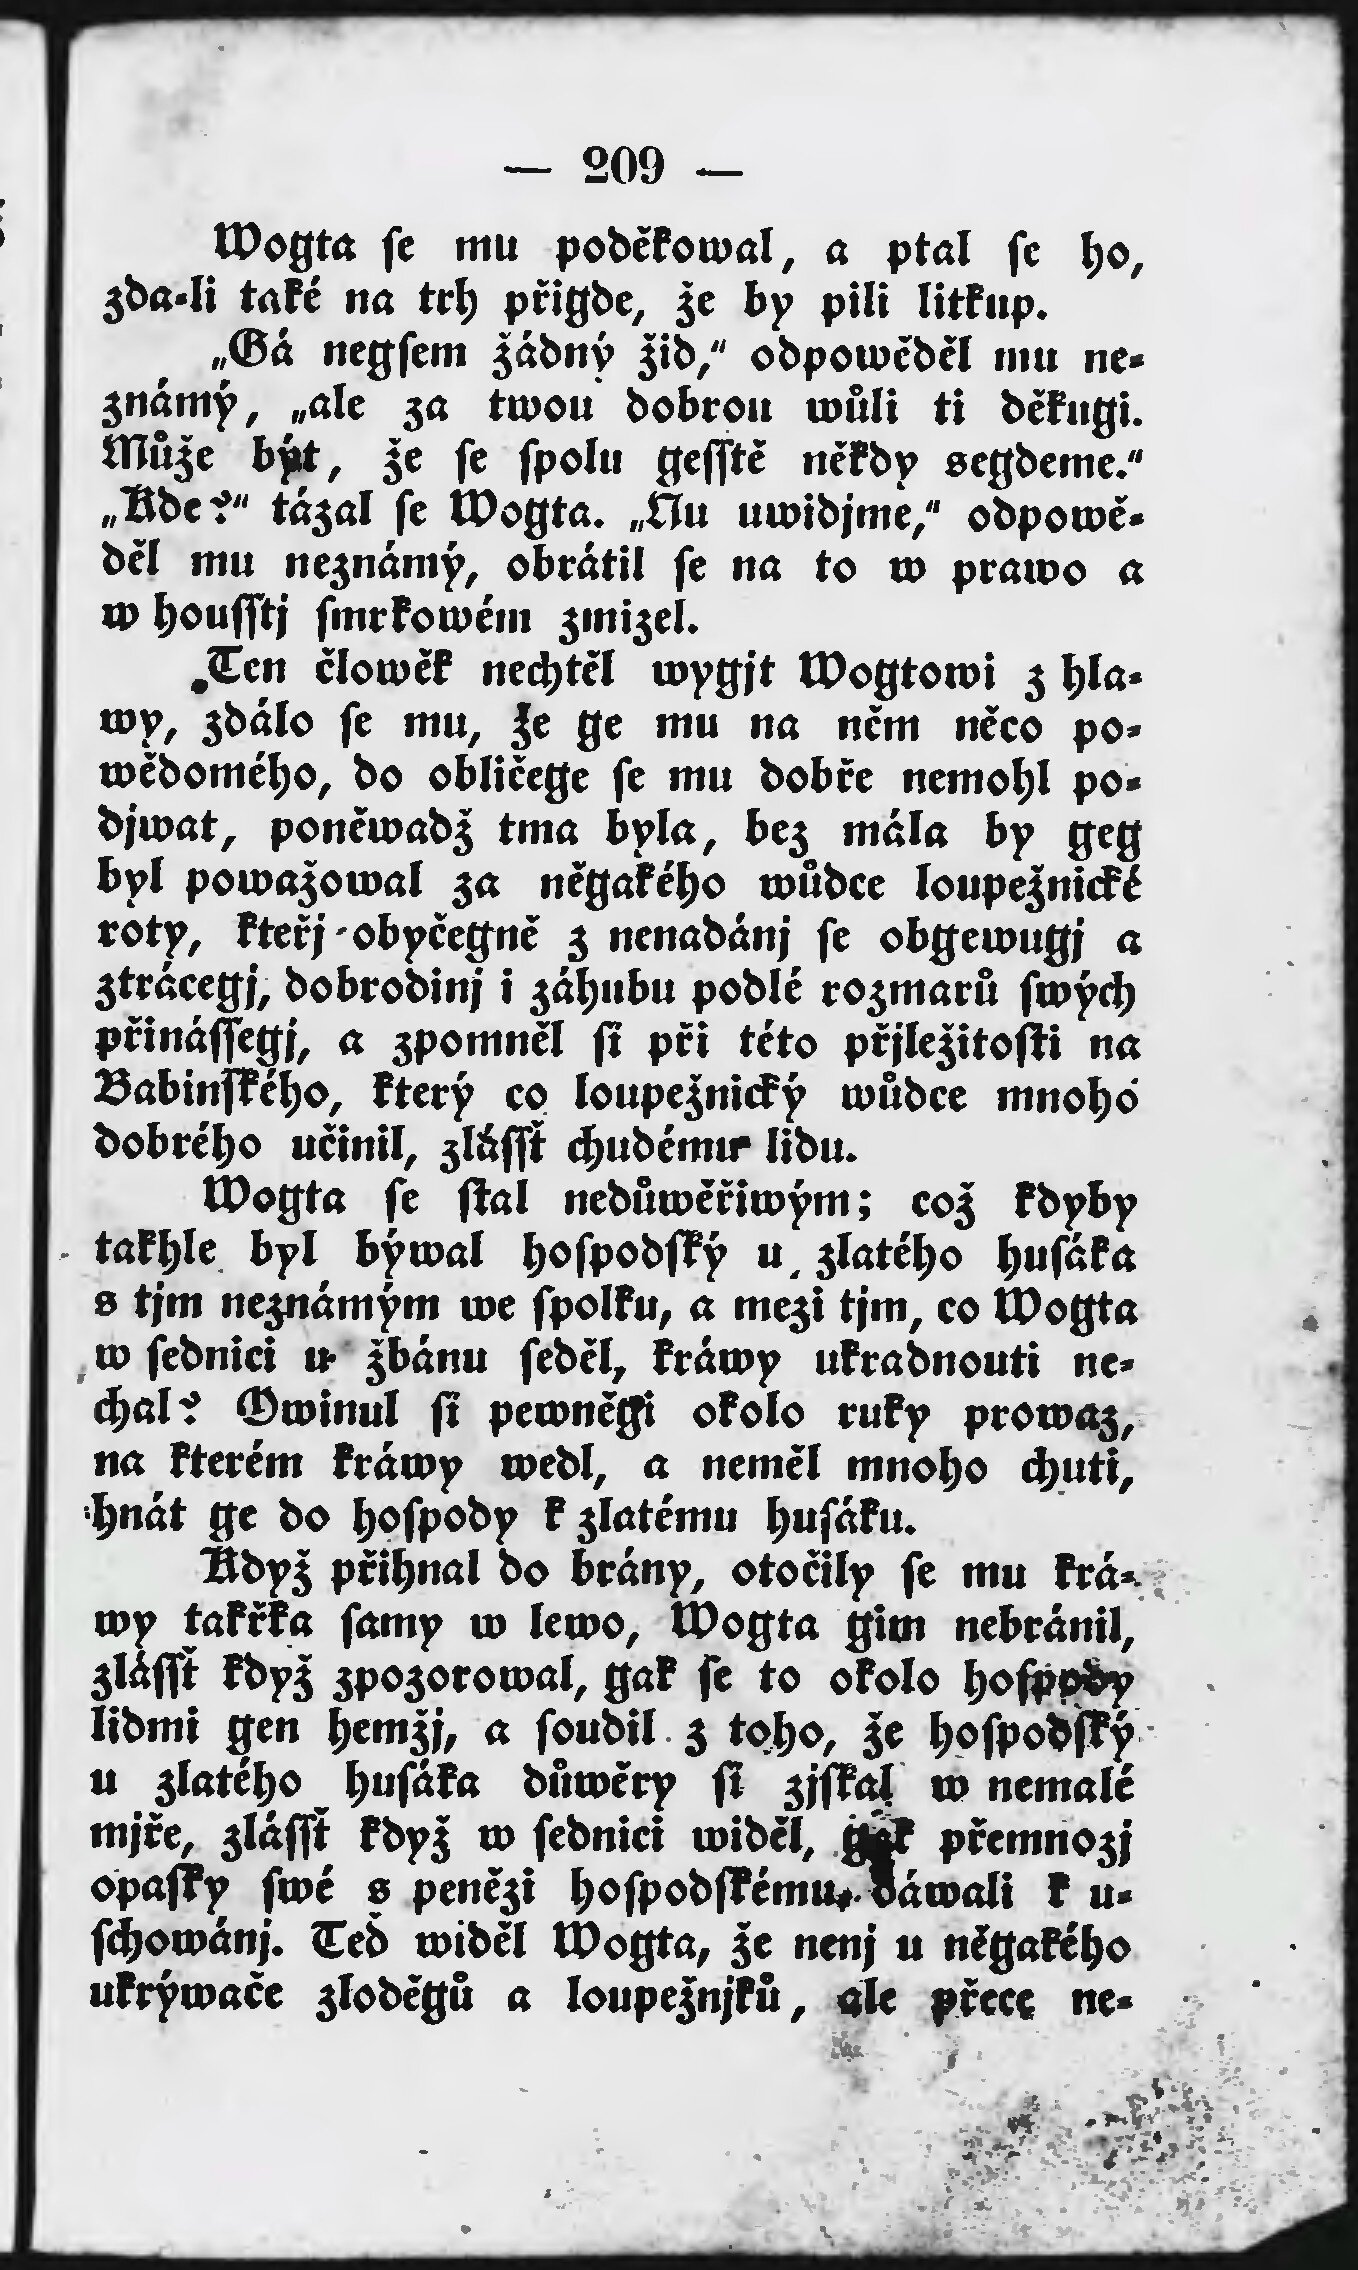 — 209 —
Wogta ſe mu poděkowal, a ptal ſe ho,
zda-li také na trh přigde, že by pili litkup.
„Gá negſem žádný žid,“ odpowěděl mu ne-
známý, „ale za twou dobrou wůli ti děkugi.
Může být, že ſe ſpolu geſſtě někdy segdeme.“
„Kde?“ tázal ſe Wogta. „Nu uwidjme,“ odpowě-
děl mu neznámý, obrátil ſe na to w prawo a
w houſſtj ſmrkowém zmizel.
Ten člowěk nechtěl wygjt Wogtowi z hla-
wy, zdálo ſe mu, že ge mu na něm něco po-
wědomého, do obličege ſe mu dobře nemohl po-
djwat, poněwadž tma byla, bez mála by geg
byl powažowal za něgakého wůdce loupežnické
roty, kteřj obyčegně z nenadánj ſe obgewugj a
ztrácegj, dobrodinj i záhubu podlé rozmarů ſwých
přináſſegj, a zpomněl ſi při této přjležitoſti na
Babinſkého, který co loupežnický wůdce mnoho
dobrého učinil, zláſſť chudému lidu.
Wogta ſe ſtal nedůwěřiwým; což kdyby
takhle byl býwal hoſpodſký u zlatého huſáka
s tjm neznámým we ſpolku, a mezi tjm, co Wogta
w ſednici u žbánu ſeděl, kráwy ukradnouti ne-
chal? Owinul ſi pewněgi okolo ruky prowaz,
na kterém kráwy wedl, a neměl mnoho chuti,
hnát ge do hoſpody k zlatému huſáku.
Když přihnal do brány, otočily ſe mu krá-
wy takřka ſamy w lewo, Wogta gim nebránil,
zláſſť když zpozorowal, gak ſe to okolo hoſpody
lidmi gen hemžj, a ſoudil z toho, že hoſpodſký
u zlatého huſáka důwěry ſi zjſkal w nemalé
mjře, zláſſť když w ſednici widěl, gak přemnozj
opaſky ſwé s penězi hoſpodſkému dáwali k u-
ſchowánj. Teď widěl Wogta, že nenj u něgakého
ukrýwače zloděgů a loupežnjků, ale přece ne-